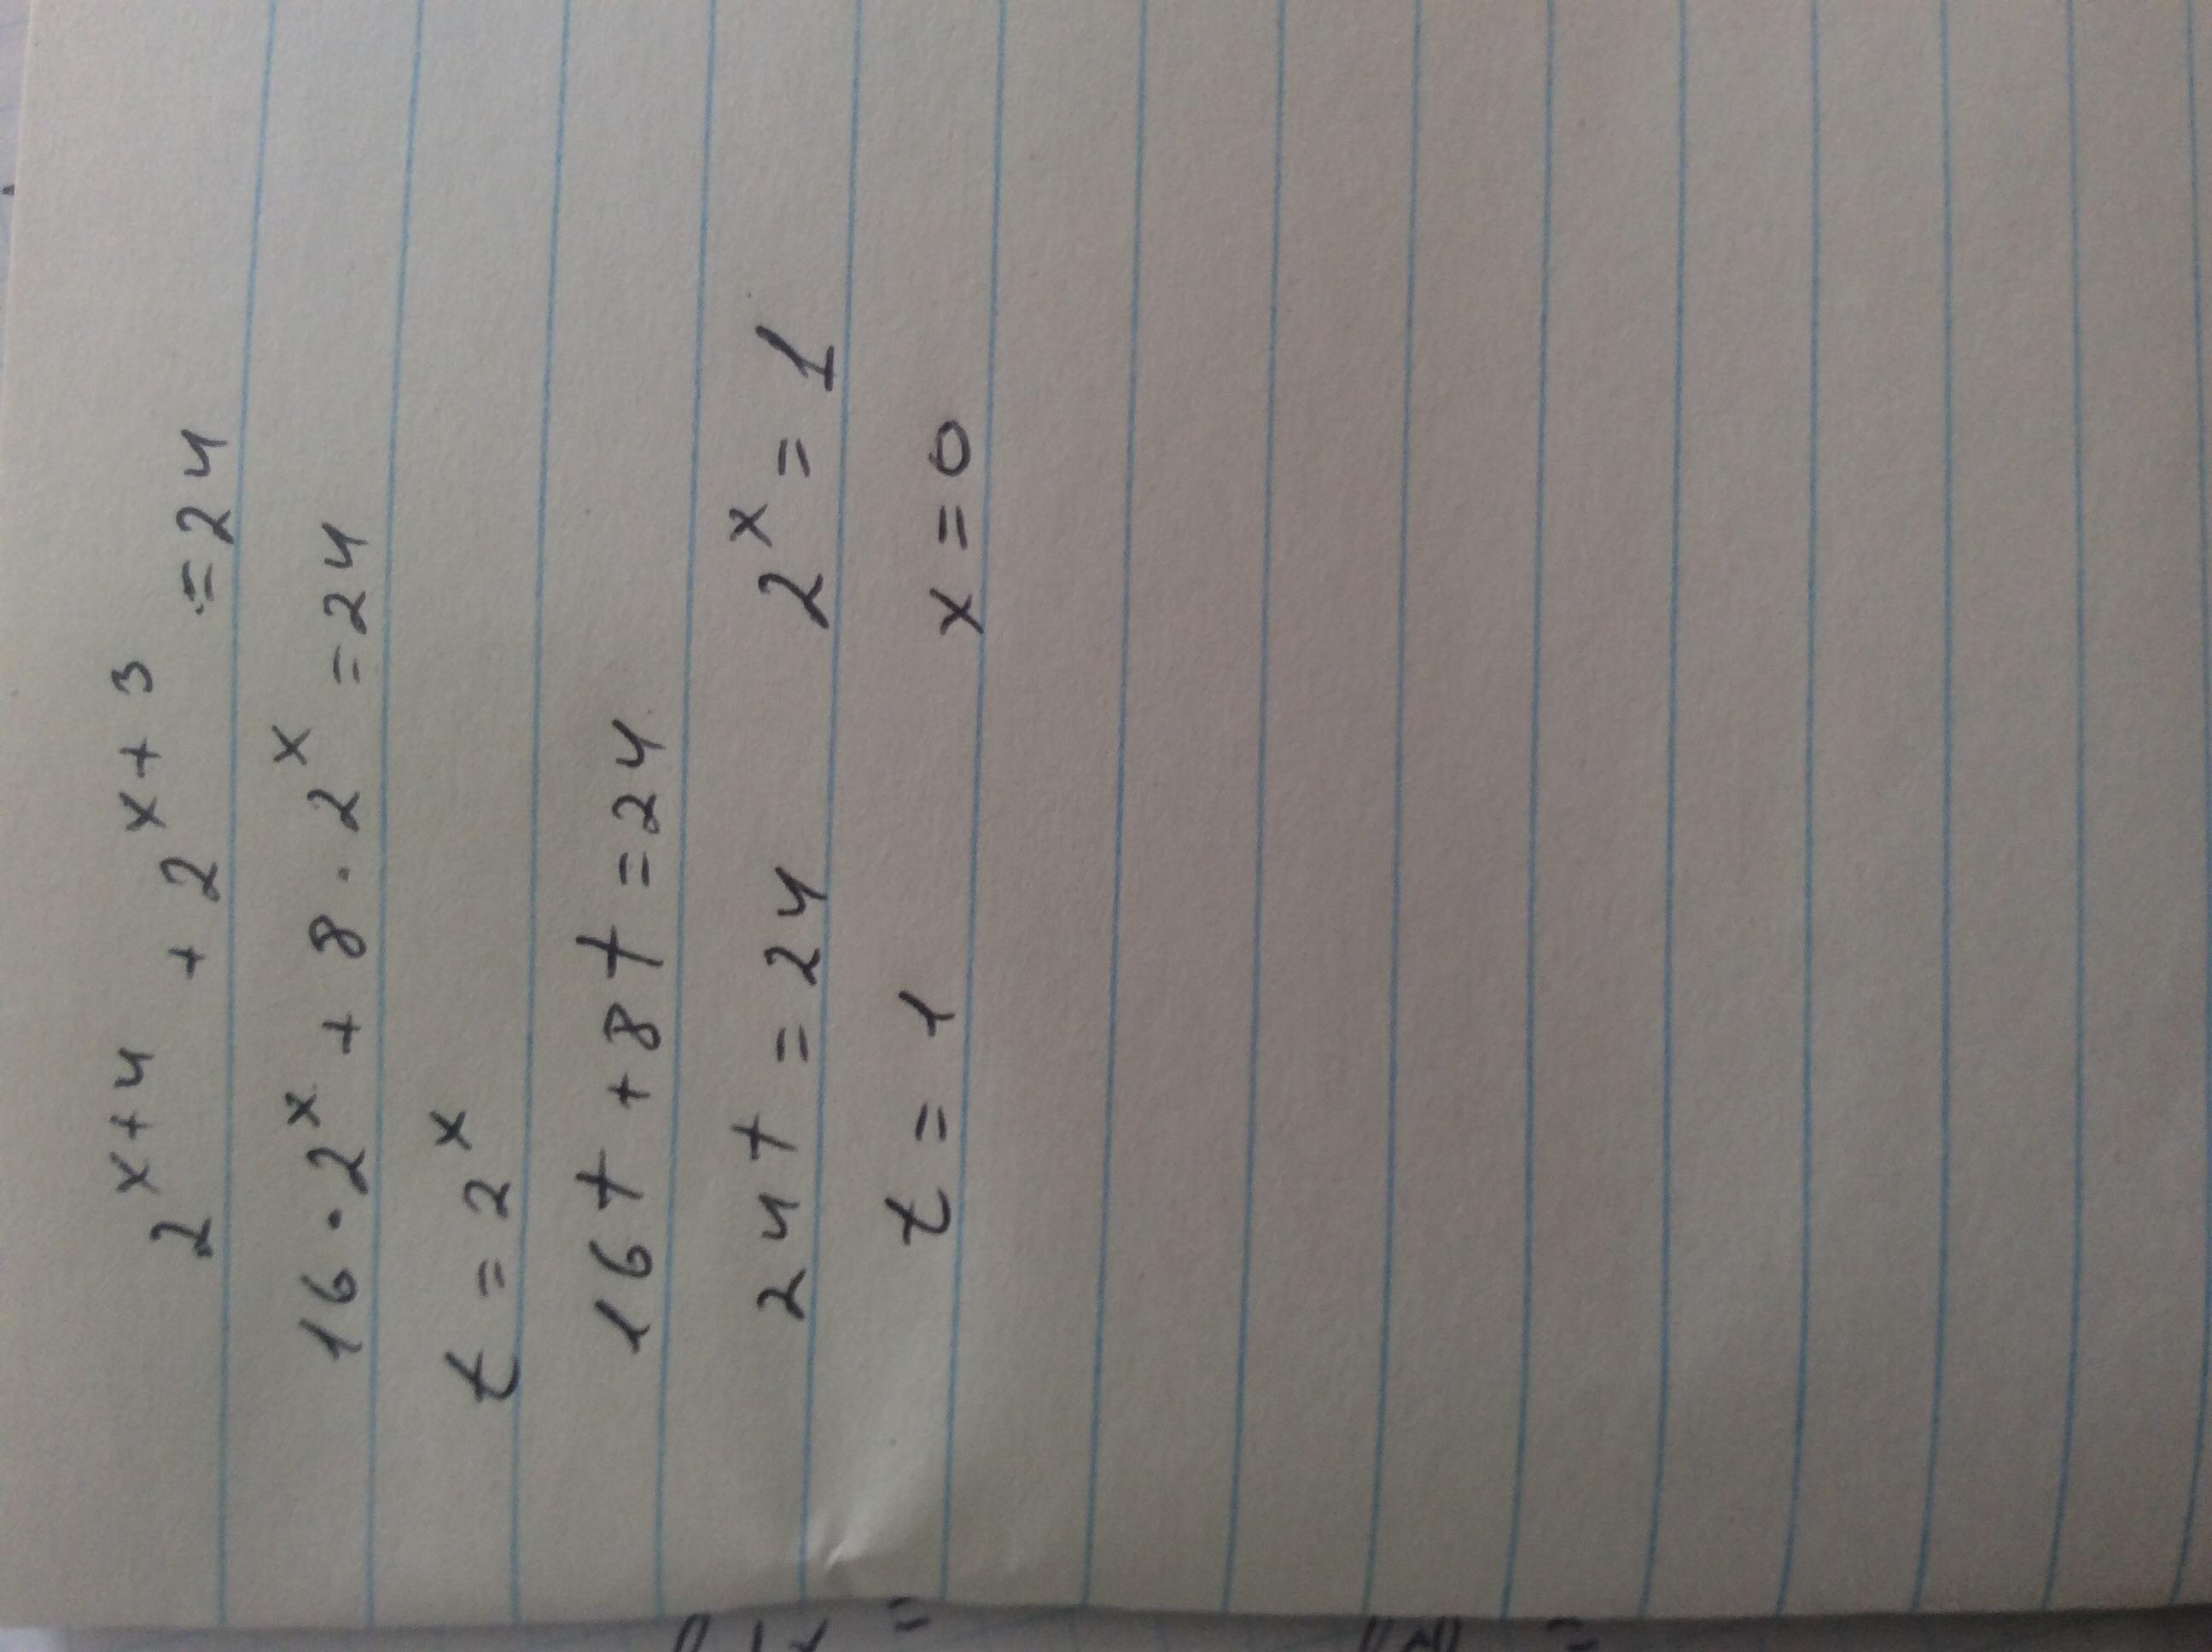 2^{x+4} + 2^{x+3} = 24
16 · 2^x + 8 · 2^x = 24
t = 2^x
16t + 8t = 24
24t = 24 2^x = 1
t = 1 x = 0